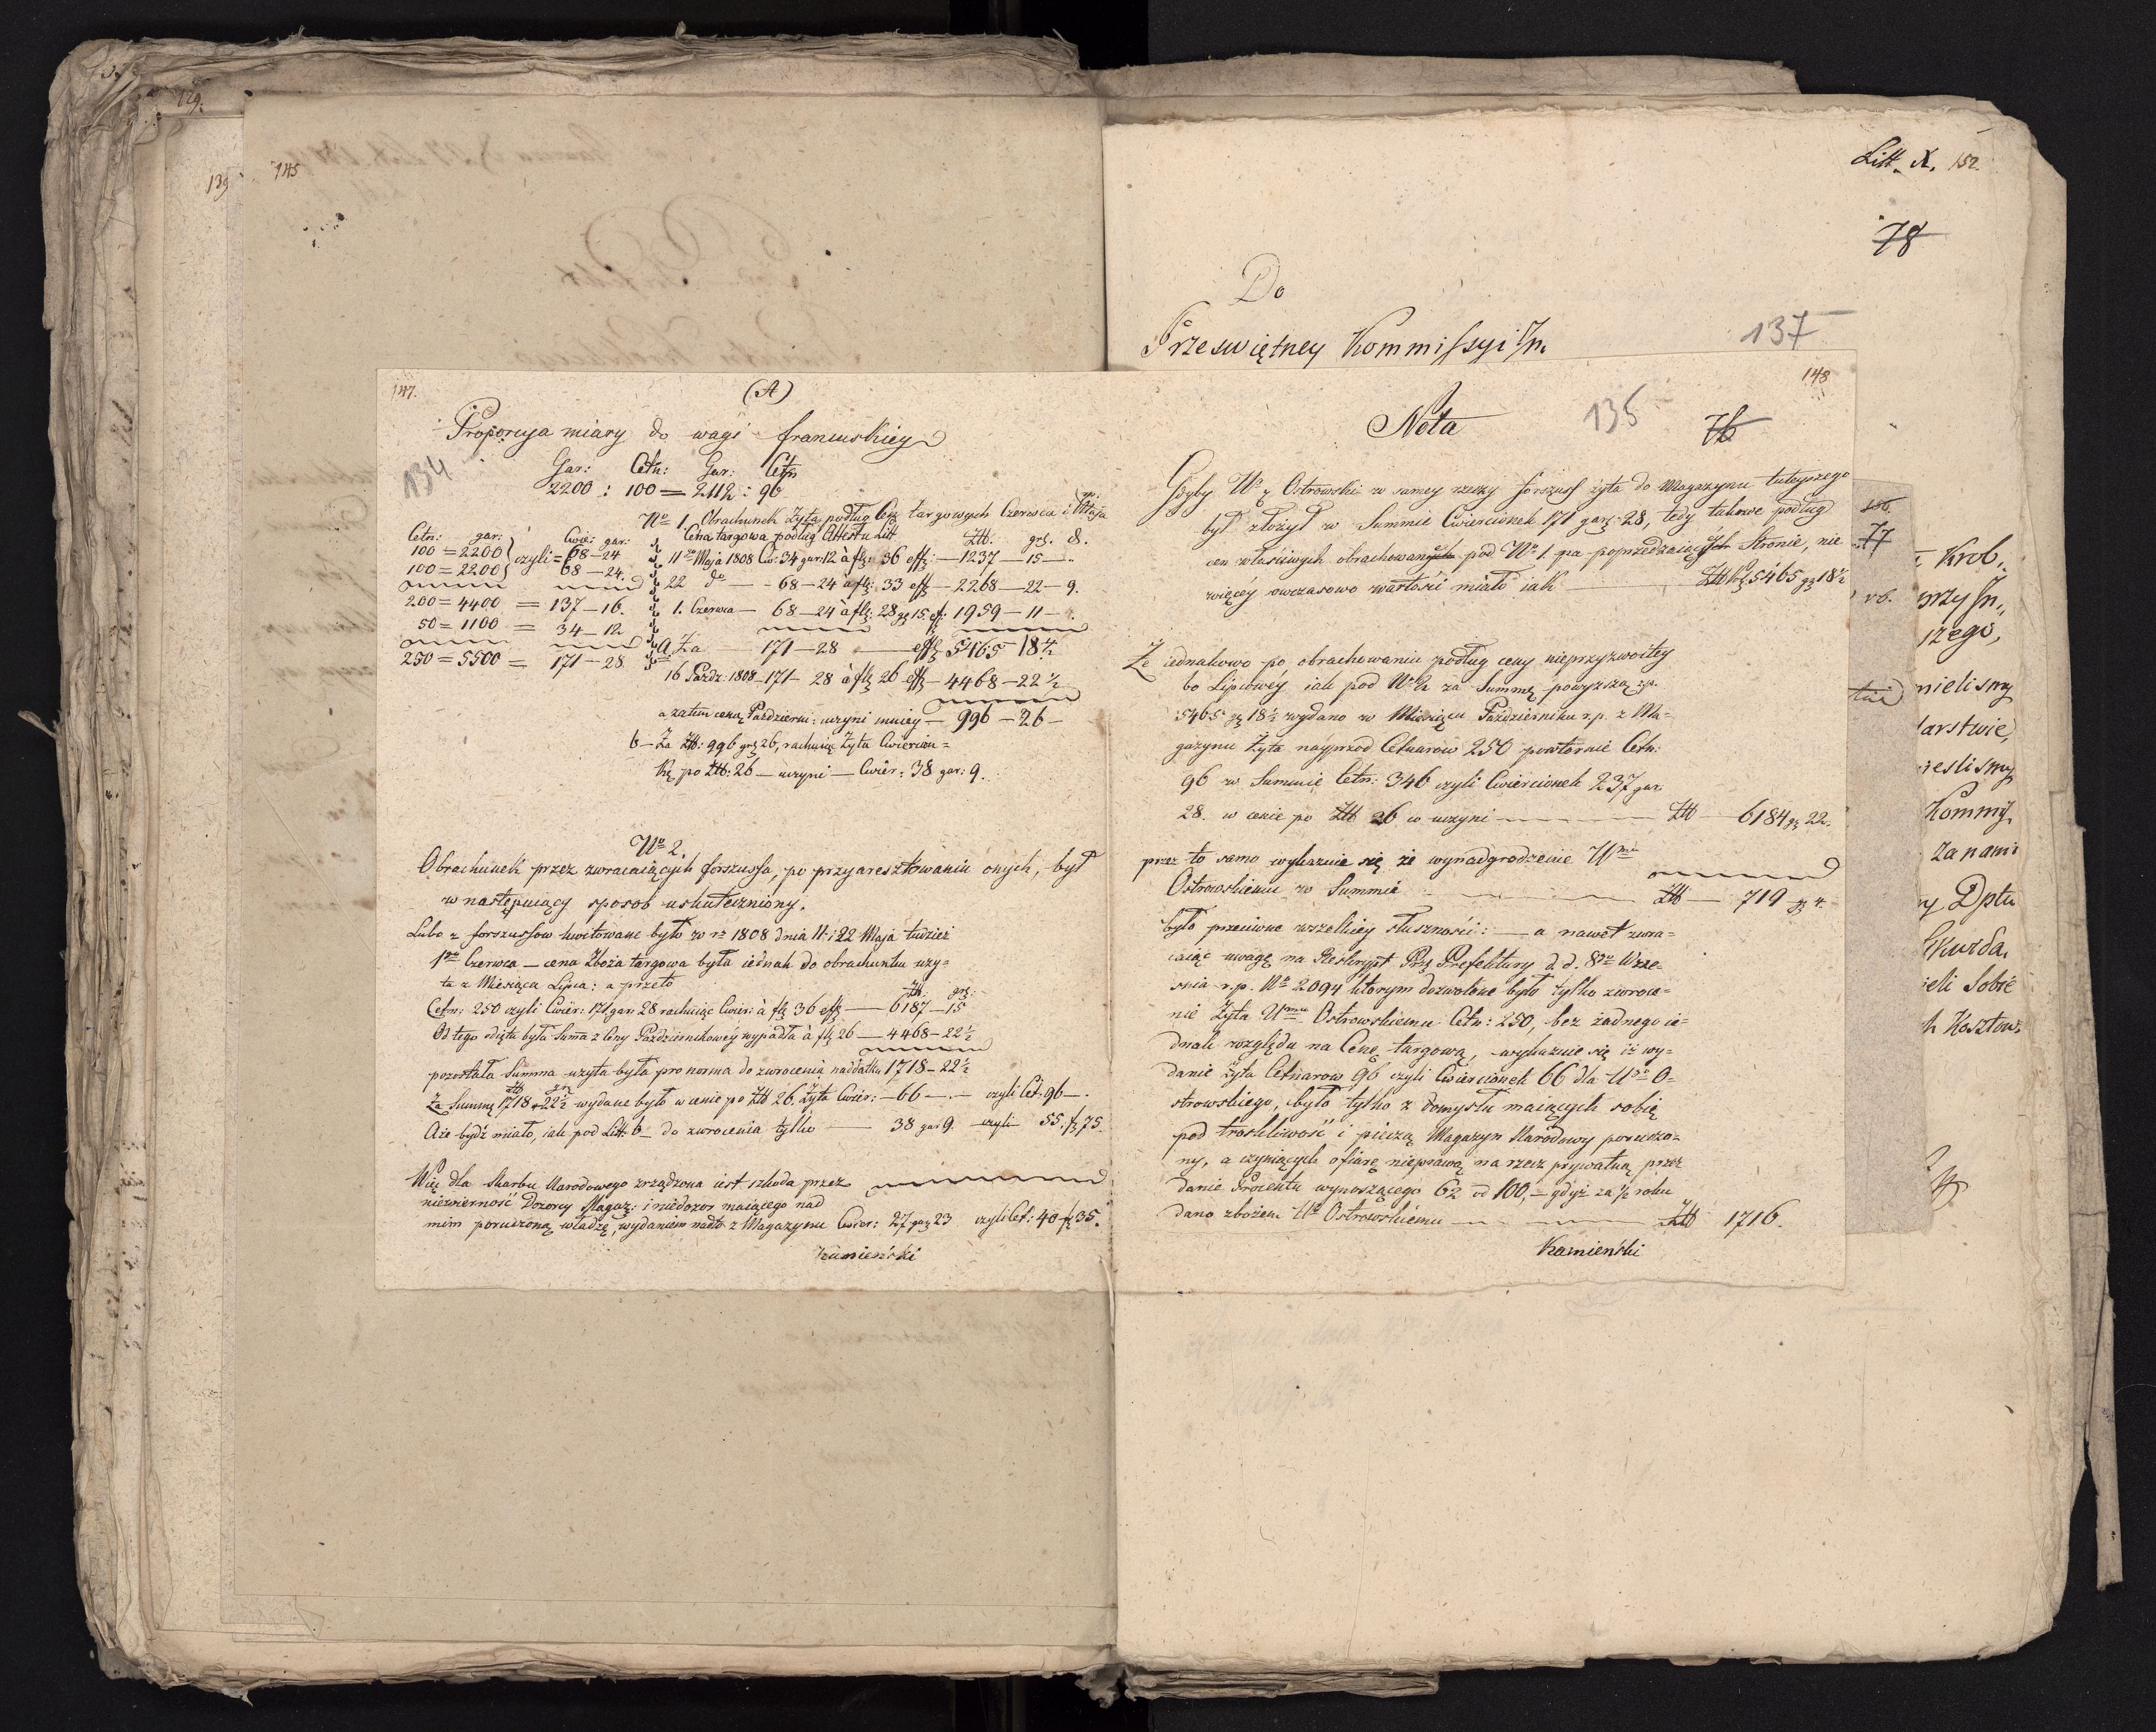 129.
139
145
147.
(A)
134
Proporcya miary do wagi francuskiey
Gar: Cetn: Gar: Cetn
2200 : 100 = 2112 : 96
No 1. Obrachunek Żyta podług Cen targowych Czerwca i Maja
Cetn: gar: Cwie: gar: Cena targowa podług Attestu Litt Złł: grs. d.
100 = 2200 } czyli = 68 – 24 11go Maja 1808 Cw: 34 gar: 12 à flr: 36 eff: – 1237 – 15 – .
100 = 2200 } 68 – 24. 22 do – 68 – 24 à flr: 33 eff – 2268 – 22 – 9.
200 = 4400 = 137 – 16. 1. Czerwca – 68 – 24 à flr: 28 gr 15 ef: 1959 – 11 – .
50 = 1100 = 34 – 12
250 = 5500 = 171 – 28 a. Za – 171 – 28 – eff 5465 – 18 ½
16 Paźdz: 1808 – 171 – 28 à flr 26 eff – 4468 – 22 ½
a zatem ceną Październi: uczyni mniey – 996 – 26 –
b – Za Złł: 996 grs 26, rachuiąc Żyta Cwiercion=
kę po Złł: 26 – uczyni – Cwier: 38 gar: 9.
No 2.
Obrachunek przez zwracaiących forszussa, po przyaresztowaniu onych, był
w następuiący sposob uskuteczniony.
Lubo z forszussow kwitowane było w r: 1808 dnia 11 i 22 Maja tudzież
1go Czerwca – cena Zboża targowa była iednak do obrachunku uży=
ta z Miesiąca Lipca: a przeto Złł: grs:
Cetn: 250 czyli Cwier: 171 gar: 28 rachuiąc Cwier: à flr 36 eff – 6187 – 15
Od tego odięta była Suma z Ceny Październikowey wypadła à flr 26 – 4468 – 22 ½
pozostała Summa użyta była pro norma do zwrocenia naddatku 1718 – 22 ½
Złł gr
Za Summę 1718 – 22 ½ wydane było w cenie po Złł 26. Żyta Cwier: – 66 – . – czyli Cet: 96 – .
A że bydź miało, iak pod Litt: b – do zwrocenia tylko – 38 gar 9. czyli 55. 75.
Więc dla Skarbu Narodowego zrządzona iest szkoda przez
niewierność Dozorcy Magaz: i niedozor maiącego nad
nim poruczoną władzę, wydaniem nadto z Magazynu Cwier: 27 gar 23 czyli Cet: 40 35.
Kamieński
Litt. X. 152.
78
Do
Przeświętney Kommissyi
137
148
Nota
135
76
Gdyby Wy Ostrowski w samey rzeczy forszuss żyta do Magazynu tuteyszego
był złożył w Summie Cwiercionek 171 garc: 28, tedy takowe podług
cen właściwych obrachowanych pod No 1. na poprzedzaiącey Stronie, nie
więcey owczasowo wartości miało iak – Złł 5465 gr 18 ½
Że iednakowo po obrachowaniu podług ceny nieprzyzwoitey
bo Lipcowey iak pod No 2 za Summę powyzszą
5465 gr 18 ½ wydano w Miesiącu Październiku r.p. z Ma=
gazynu Żyta nayprzod Cetnarow 250 powtornie Cetn:
96 w Summie Cetn: 346 czyli Cwiercionek 237 gar:
28. w cenie po Złł 26 co uczyni – Złł – 6184 gr 22.
przez to samo wykazuie się że wynadgrodzenie Wmu
Ostrowskiemu w Summie – Złł – 719 gr 4.
było przeciwne wszelkiey słuszności: – a nawet zwra=
caiąc uwagę na Reskrypt Prz Prefektury d. d. 8go Wrze=
snia r.p. No 2094 ktorym dozwolone było tylko zwroce=
nie Żyta Umu Ostrowskiemu Cetn: 250, bez żadnego ie=
dnak względu na Cenę targową, wykazuie się iż wy=
danie żyta Cetnarow 96 czyli Cwiercionek 66 dla Ugo O=
strowskiego, było tylko z domysłu maiących sobie
pod troskliwość i pieczą Magazyn Narodowy poruczo=
ny, a czyniących ofiarę nieprawą na rzecz prywatną przez
danie Procentu wynoszącego 62 od 100, – gdyż za ½ roku
dano zbożem Ostrowskiemu – Złł 1716.
Kamieński
77
Krob.
rzego,
mielismy
darstwie,
reslismy
Kommis.
za nami
Dptu
Skurda.
ieli Sobie
Kosztow